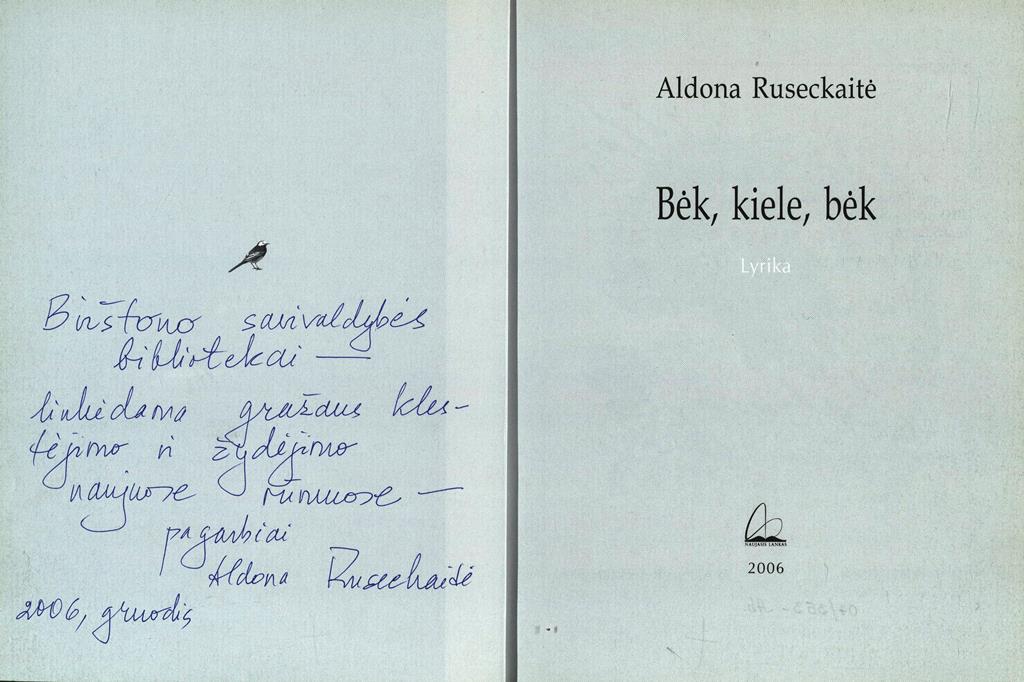 Birštono savivaldybės
bibliotekai —
linkėdama gražaus kles-
tėjimo ir žydėjimo
naujuose rūmuose —
pagarbiai
Aldona Ruseckaitė
2006, gruodis
Aldona Ruseckaitė
Bėk, kiele, bėk
Lyrika
NAUJASIS LANKAS
2006